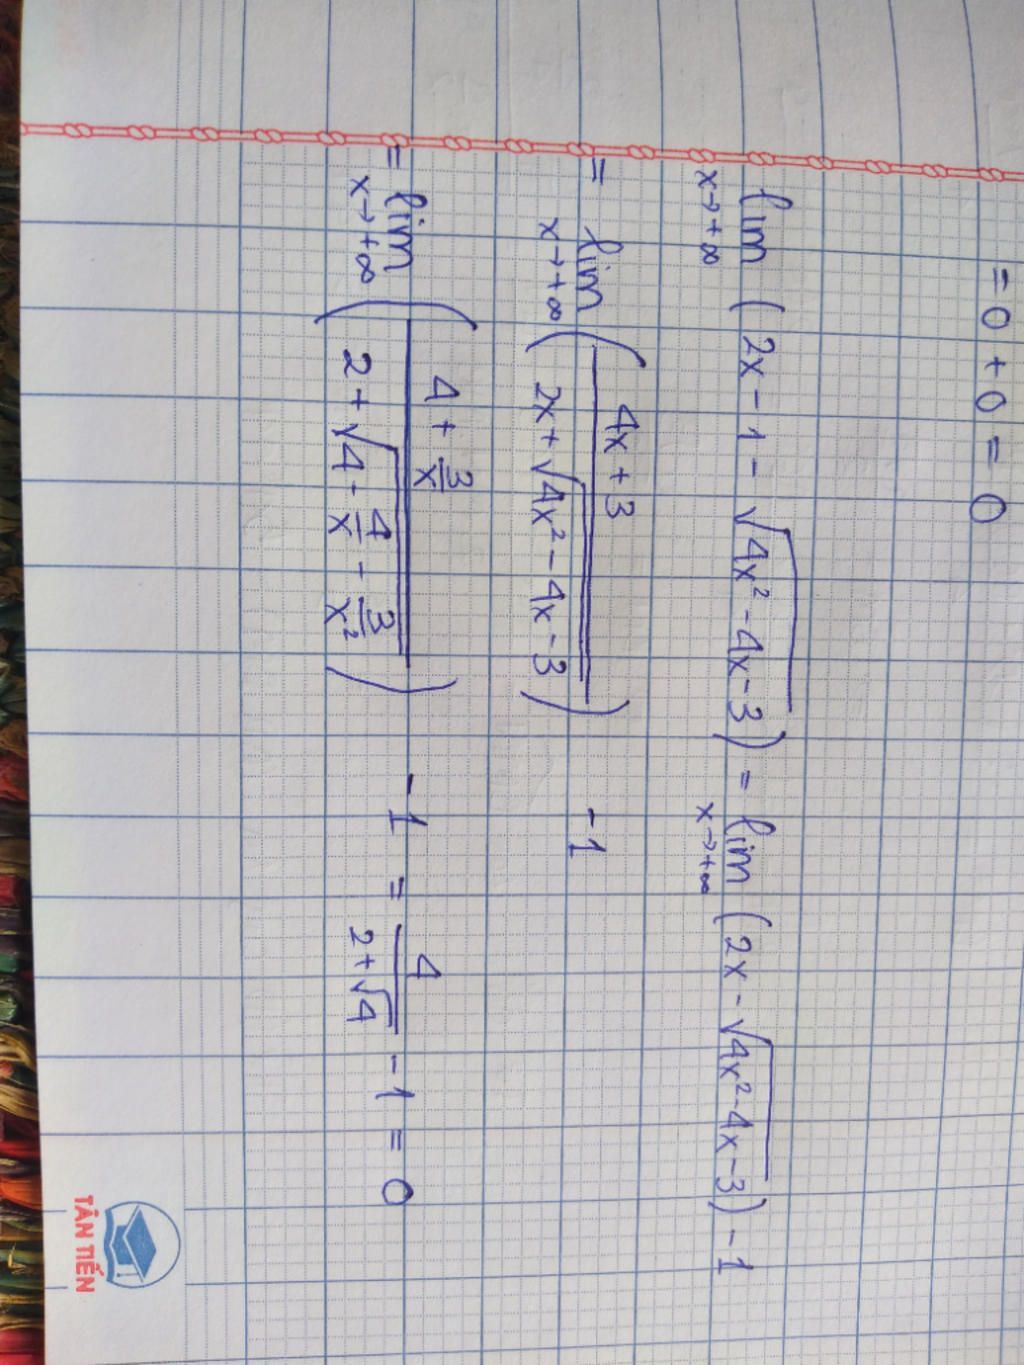 = 0 + 0 = 0
lim (2x - 1 - √4x² - 4x - 3) = lim (2x - √4x² - 4x - 3) - 1
x→+∞ x→+∞
= lim (4x + 3 / 2x + √4x² - 4x - 3) - 1
x→+∞
= lim (4 + 3/x / 2 + √4 - 4/x - 3/x²) - 1 = 4 / 2 + √4 - 1 = 0
x→+∞
TÂN TIẾN